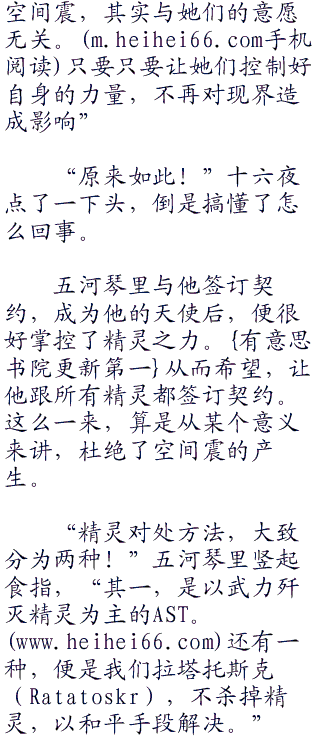 空间震，其实与她们的意愿
无关。(m.heihei66.com手机
阅读)只要只要让她们控制好
自身的力量，不再对现界造
成影响”
“原来如此！”十六夜
点了一下头，倒是搞懂了怎
么回事。
五河琴里与他签订契
约，成为他的天使后，便很
好掌控了精灵之力。{有意思
书院更新第一}从而希望，让
他跟所有精灵都签订契约。
这么一来，算是从某个意义
来讲，杜绝了空间震的产
生。
“精灵对处方法，大致
分为两种！”五河琴里竖起
食指，“其一，是以武力歼
灭精灵为主的AST。
(www.heihei66.com)还有一
种，便是我们拉塔托斯克
（Ratatoskr），不杀掉精
灵，以和平手段解决。”